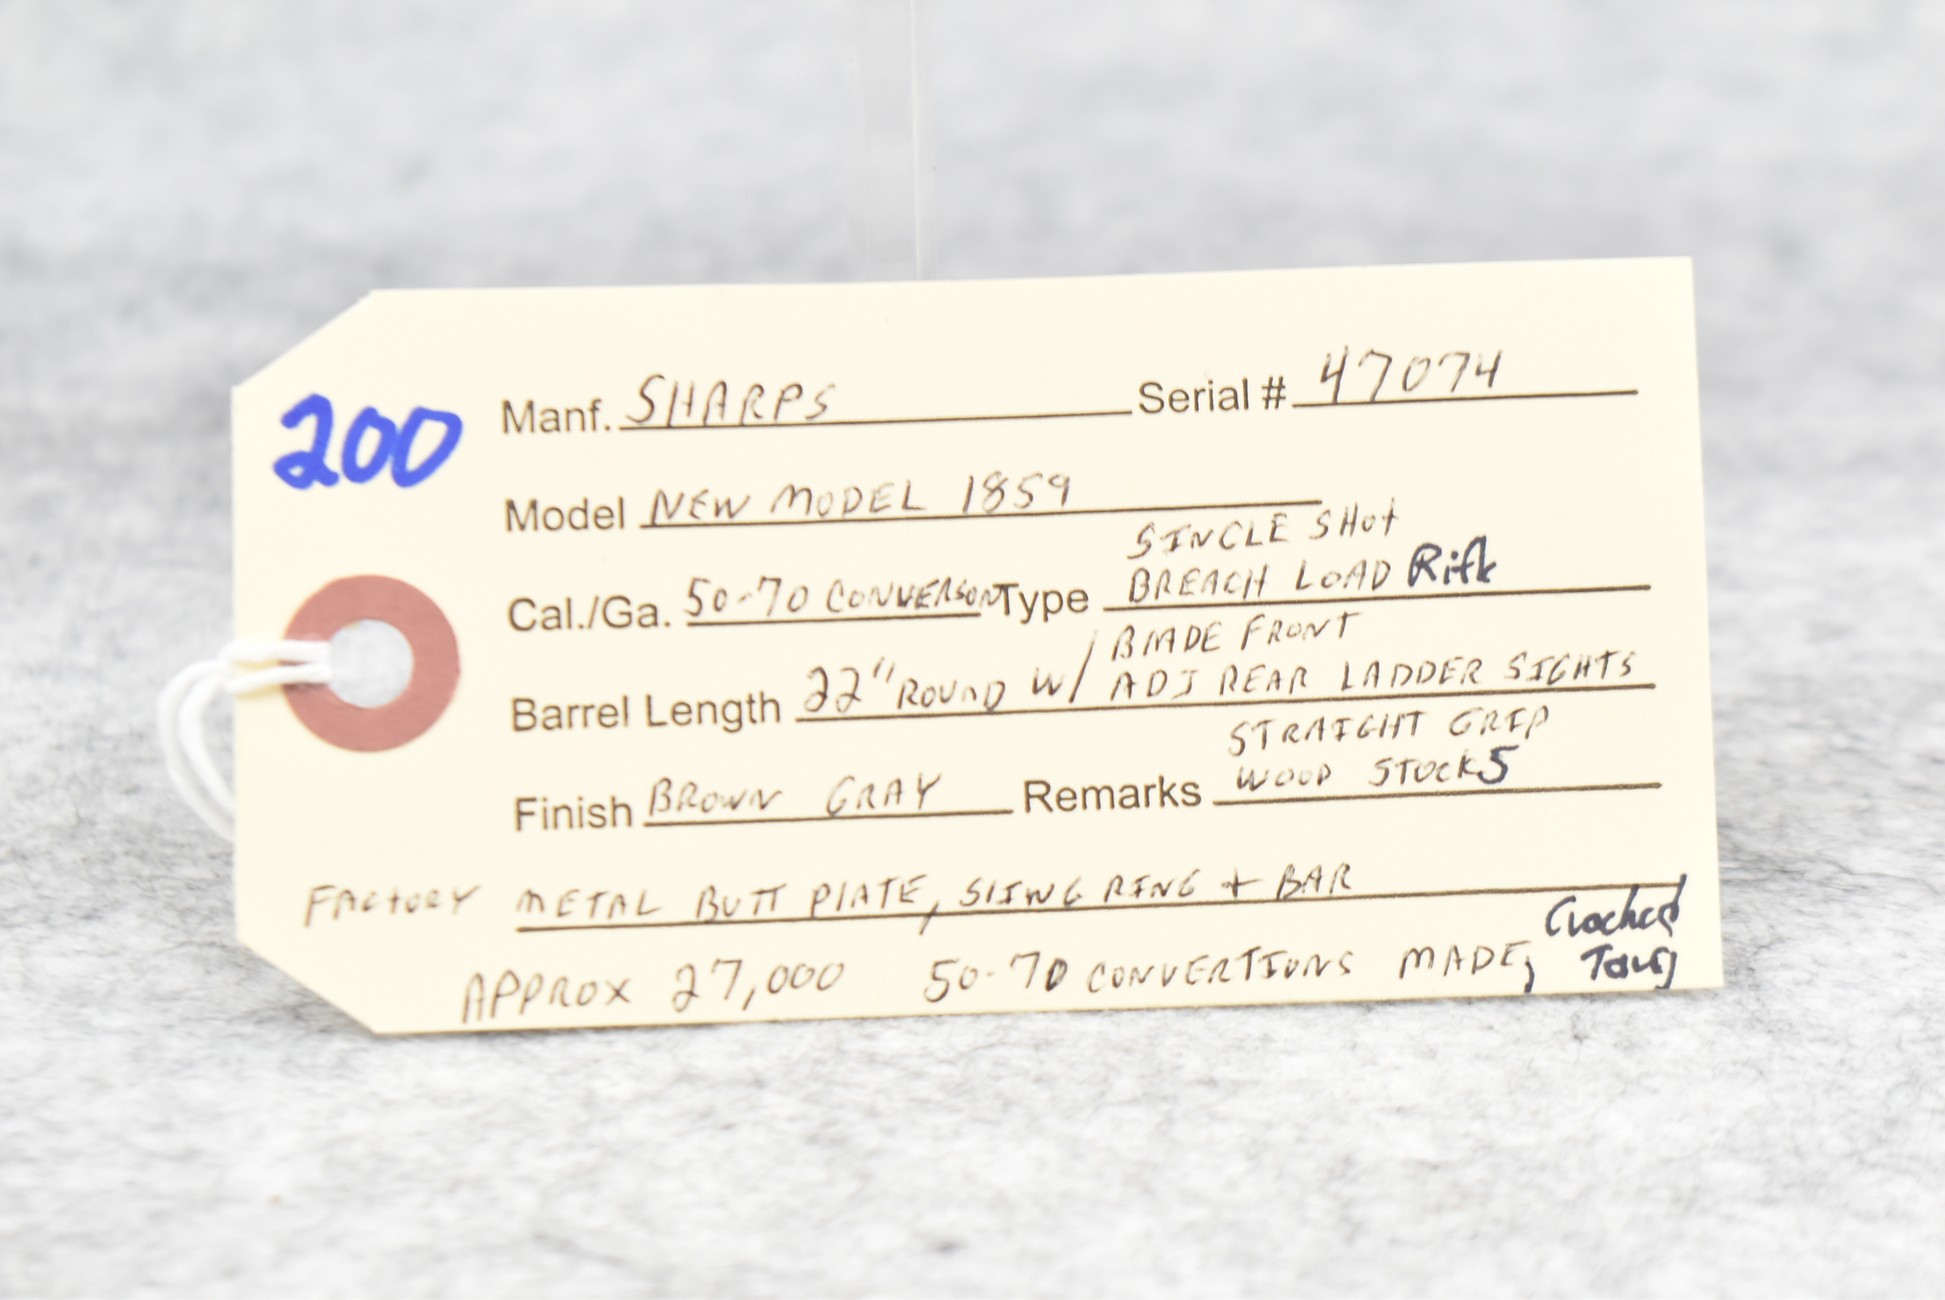 200
Manf. SHARPS Serial # 47074
Model NEW MODEL 1859
SINGLE SHOT
Cal./Ga. 50-70 CONVERSON Type BREACH LOAD Rifle
BLADE FRONT
Barrel Length 22" ROUND W/ ADJ REAR LADDER SIGHTS
STRAIGHT GRIP
Finish BROWN GRAY Remarks WOOD STOCKS
FACTORY METAL BUTT PLATE, SLING RING + BAR
APPROX 27,000 50-70 CONVERTIONS MADE, Cracked
Tang